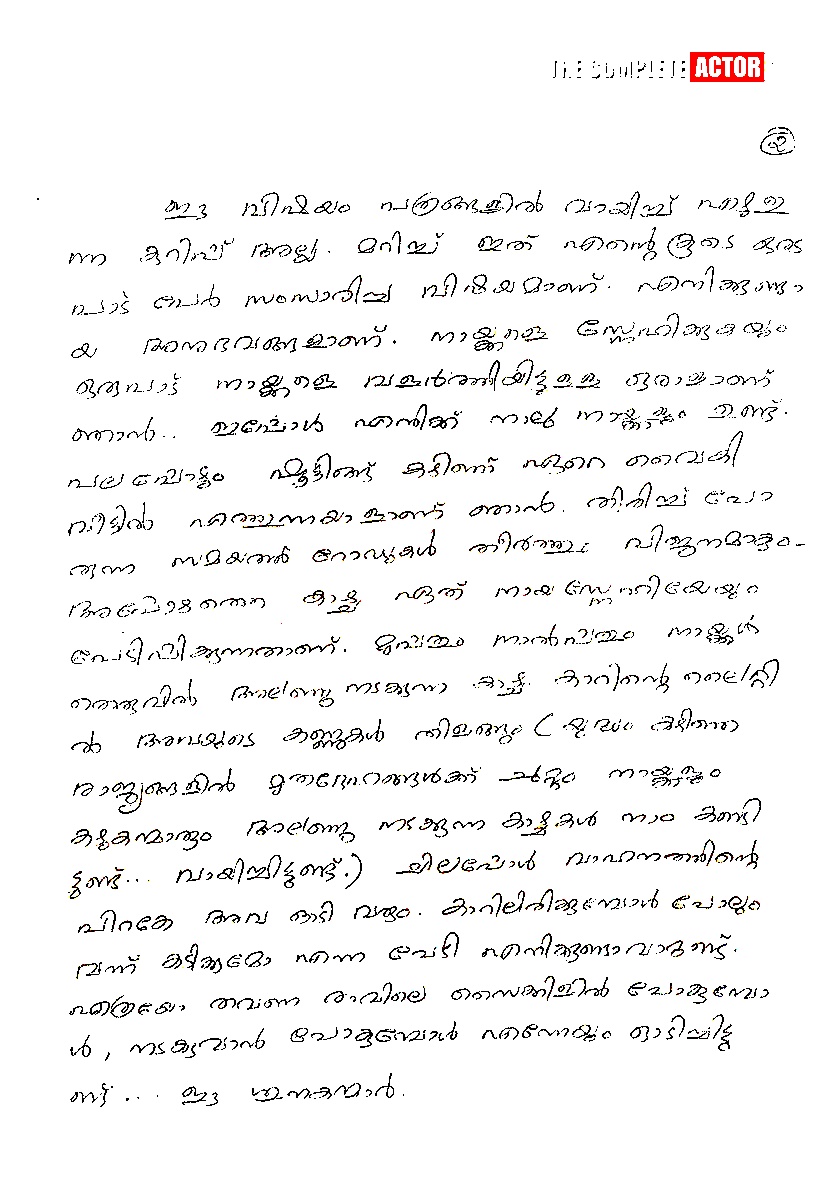 THE COMPLETE ACTOR
൨
ഈ വിഷയം പത്രങ്ങളിൽ വായിച്ച് എഴുതു
ന്ന കുറിപ്പ് അല്ല. മറിച്ച് ഇത് എന്റെ കൂടെ ഒരു
പാട് പേർ സംസാരിച്ച വിഷയമാണ്. എനിക്കുണ്ടാ
യ അനുഭവങ്ങളാണ്. നായ്ക്കളെ സ്നേഹിക്കുകയും
ഒരുപാട് നായ്ക്കളെ വളർത്തിയിട്ടുള്ള ഒരാളാണ്
ഞാൻ.. ഇപ്പോൾ എനിക്ക് നാലു നായ്ക്കളും ഉണ്ട്.
പലപ്പോഴും ഷൂട്ടിങ്ങ് കഴിഞ്ഞ് ഏറെ വൈകി
വീട്ടിൽ എത്തുന്നയാളാണ് ഞാൻ. തിരിച്ച് പോ
രുന്ന സമയത്ത് റോഡുകൾ തീർത്തും വിജനമാകും.
അപ്പോഴത്തെ കാഴ്ച ഏത് നായസ്നേഹിയേയും
പേടിപ്പിക്കുന്നതാണ്. മുപ്പതും നാൽപ്പതും നായ്ക്കൾ
തെരുവിൽ അലഞ്ഞു നടക്കുന്ന കാഴ്ച. കാറിന്റെ ലൈറ്റി
ൽ അവയുടെ കണ്ണുകൾ തിളങ്ങും (യുദ്ധം കഴിഞ്ഞ
രാജ്യങ്ങളിൽ മൃതദേഹങ്ങൾക്ക് ചുറ്റും നായ്ക്കളും
കഴുകന്മാരും അലഞ്ഞു നടക്കുന്ന കാഴ്ചകൾ നാം കണ്ടി
ട്ടുണ്ട്... വായിച്ചിട്ടുണ്ട്.) ചിലപ്പോൾ വാഹനത്തിന്റെ
പിറകേ അവ ഓടി വരും. കാറിലിരിക്കുമ്പോൾ പോലും
വന്ന് കടിക്കുമോ എന്ന പേടി എനിക്കുണ്ടാവാറുണ്ട്.
എത്രയോ തവണ രാവിലെ സൈക്കിളിൽ പോകുമ്പോ
ൾ, നടക്കുവാൻ പോകുമ്പോൾ എന്നേയും ഓടിച്ചിട്ടു
ണ്ട് ... ഈ ശുനകന്മാർ.